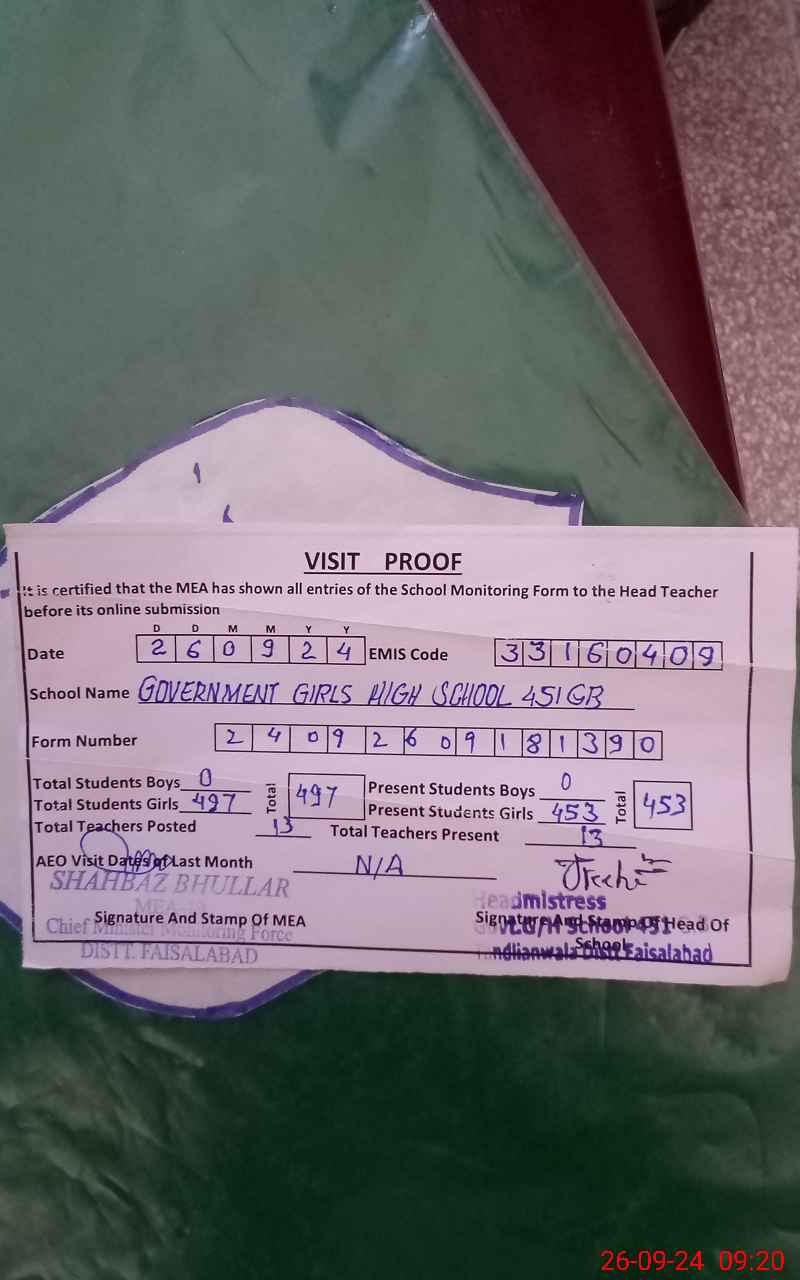 VISIT PROOF
It is certified that the MEA has shown all entries of the School Monitoring Form to the Head Teacher
before its online submission
D D M M Y Y
Date 2 6 0 9 2 4 EMIS Code 3 3 1 6 0 4 0 9
School Name GOVERNMENT GIRLS HIGH SCHOOL 451 GB
Form Number 2 4 0 9 2 6 0 9 1 8 1 3 9 0
Total Students Boys 0 Present Students Boys 0
Total Students Girls 497 Total 497 Present Students Girls 453 Total 453
Total Teachers Posted 13 Total Teachers Present 13
AEO Visit Dates of Last Month N/A
SHAHBAZ BHULLAR
Headmistress
Signature And Stamp Of MEA Signature And Stamp Of Head Of
School
Chief Minister Monitoring Force
DISTT. FAISALABAD
Distt Faisalabad
26-09-24 09:20